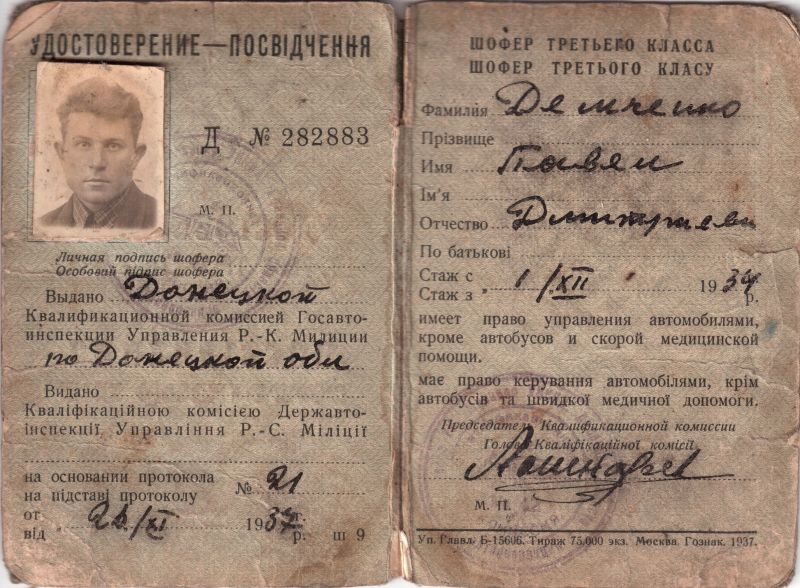 УДОСТОВЕРЕНИЕ—ПОСВІДЧЕННЯ
Д № 282883
М. П.
Личная подпись шофера
Особовий підпис шофера
Выдано Донецкой
Квалификационной комиссией Госавто-
инспекции Управления Р.-К. Милиции
по Донецкой обл
Видано
Кваліфікаційною комісією Державто-
інспекції Управління Р.-С. Міліції
на основании протокола
на підставі протоколу
№ 21
от
від „ 26/XI 1937 г.
р. ш 9
ШОФЕР ТРЕТЬЕГО КЛАССА
ШОФЕР ТРЕТЬОГО КЛАСУ
Фамилия Демченко
Прізвище
Имя Павел
Ім'я
Отчество Дмитриеви
По батькові
Стаж с
Стаж з „ 1/XII 1937
р.
имеет право управления автомобилями,
кроме автобусов и скорой медицинской
помощи.
має право керування автомобілями, крім
автобусів та швидкої медичної допомоги.
Председатель Квалификационной комиссии
Голова Кваліфікаційної комісії
М. П.
Уп. Главл. Б-15606. Тираж 75.000 экз. Москва. Гознак. 1937.